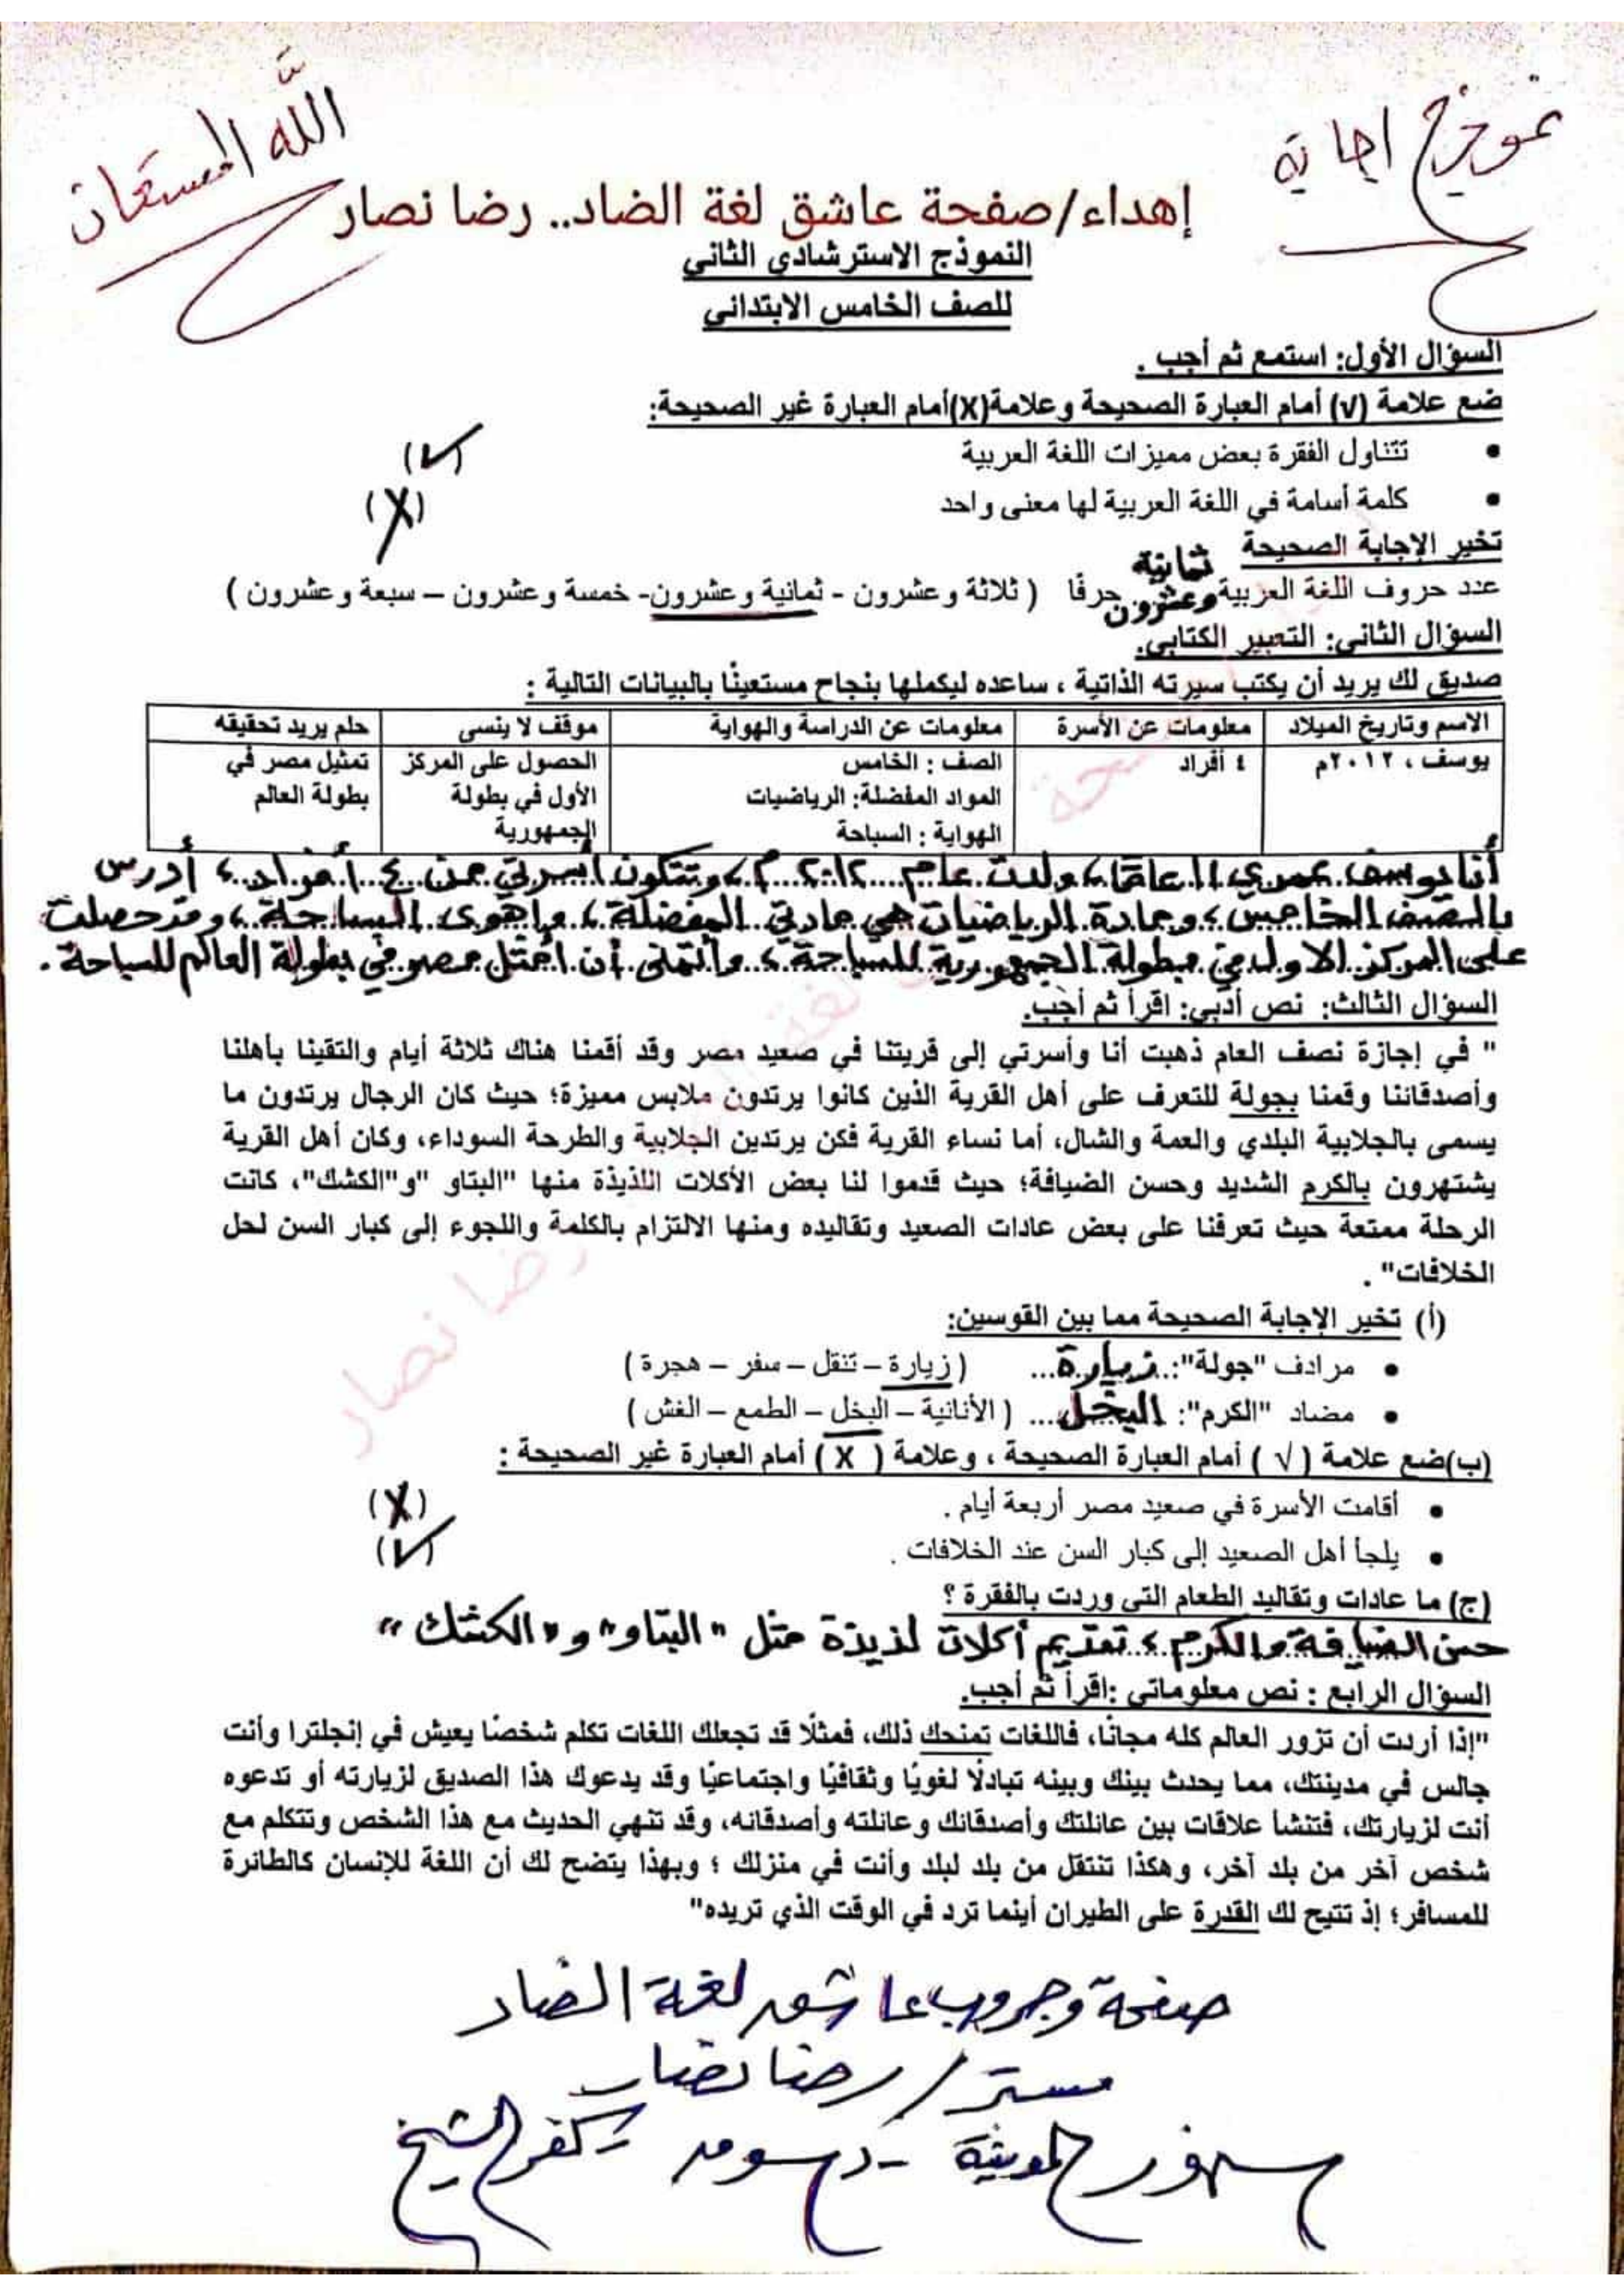 نموذج اجابة
الله المستعان
إهداء/صفحة عاشق لغة الضاد.. رضا نصار
النموذج الاسترشادي الثاني
للصف الخامس الابتدائي
السؤال الأول: استمع ثم أجب .
ضع علامة (√) أمام العبارة الصحيحة وعلامة(X)أمام العبارة غير الصحيحة:
• تتناول الفقرة بعض مميزات اللغة العربية (√)
• كلمة أسامة في اللغة العربية لها معنى واحد (X)
تخير الإجابة الصحيحة
عدد حروف اللغة العربية ثمانية وعشرون حرفًا ( ثلاثة وعشرون - ثمانية وعشرون- خمسة وعشرون – سبعة وعشرون )
السؤال الثاني: التعبير الكتابي.
صديق لك يريد أن يكتب سيرته الذاتية ، ساعده ليكملها بنجاح مستعينًا بالبيانات التالية :
الاسم وتاريخ الميلاد معلومات عن الأسرة معلومات عن الدراسة والهواية موقف لا ينسى حلم يريد تحقيقه
يوسف ، ٢٠١٢م ٤ أفراد الصف : الخامس الحصول على المركز تمثيل مصر في
المواد المفضلة: الرياضيات الأول في بطولة بطولة العالم
الهواية : السباحة الجمهورية
أنا يوسف عمري ١١ عامًا، ولدت عام ٢٠١٢ م، وتتكون أسرتي من ٤ أفراد، أدرس
بالصف الخامس، ومادة الرياضيات هي مادتي المفضلة، وأهوى السباحة، وقد حصلت
على المركز الاول في بطولة الجمهورية للسباحة، وأتمنى أن أمثل مصر في بطولة العالم للسباحة.
السؤال الثالث: نص أدبي: اقرأ ثم أجب.
" في إجازة نصف العام ذهبت أنا وأسرتي إلى قريتنا في صعيد مصر وقد أقمنا هناك ثلاثة أيام والتقينا بأهلنا
وأصدقائنا وقمنا بجولة للتعرف على أهل القرية الذين كانوا يرتدون ملابس مميزة؛ حيث كان الرجال يرتدون ما
يسمى بالجلابية البلدي والعمة والشال، أما نساء القرية فكن يرتدين الجلابية والطرحة السوداء، وكان أهل القرية
يشتهرون بالكرم الشديد وحسن الضيافة؛ حيث قدموا لنا بعض الأكلات اللذيذة منها "البتاو "و"الكشك"، كانت
الرحلة ممتعة حيث تعرفنا على بعض عادات الصعيد وتقاليده ومنها الالتزام بالكلمة واللجوء إلى كبار السن لحل
الخلافات" .
(أ) تخير الإجابة الصحيحة مما بين القوسين:
• مرادف "جولة": زيارة ( زيارة – تنقل – سفر – هجرة )
• مضاد "الكرم": البخل ( الأنانية – البخل – الطمع – الغش )
(ب)ضع علامة ( √ ) أمام العبارة الصحيحة ، وعلامة ( X ) أمام العبارة غير الصحيحة :
• أقامت الأسرة في صعيد مصر أربعة أيام . (X)
• يلجأ أهل الصعيد إلى كبار السن عند الخلافات . (√)
(ج) ما عادات وتقاليد الطعام التي وردت بالفقرة ؟
حسن الضيافة والكرم، تقديم أكلات لذيذة مثل "البتاو" و"الكشك"
السؤال الرابع : نص معلوماتي :اقرأ ثم أجب.
"إذا أردت أن تزور العالم كله مجانًا، فاللغات تمنحك ذلك، فمثلًا قد تجعلك اللغات تكلم شخصًا يعيش في إنجلترا وأنت
جالس في مدينتك، مما يحدث بينك وبينه تبادلًا لغويًا وثقافيًا واجتماعيًا وقد يدعوك هذا الصديق لزيارته أو تدعوه
أنت لزيارتك، فتنشأ علاقات بين عائلتك وأصدقائك وعائلته وأصدقائه، وقد تنهي الحديث مع هذا الشخص وتتكلم مع
شخص آخر من بلد آخر، وهكذا تنتقل من بلد لبلد وأنت في منزلك ؛ وبهذا يتضح لك أن اللغة للإنسان كالطائرة
للمسافر؛ إذ تتيح لك القدرة على الطيران أينما ترد في الوقت الذي تريده"
صفحة وجروب عاشق لغة الضاد
مستر / رضا نصار
سنهور المدينة - دسوق - كفر الشيخ